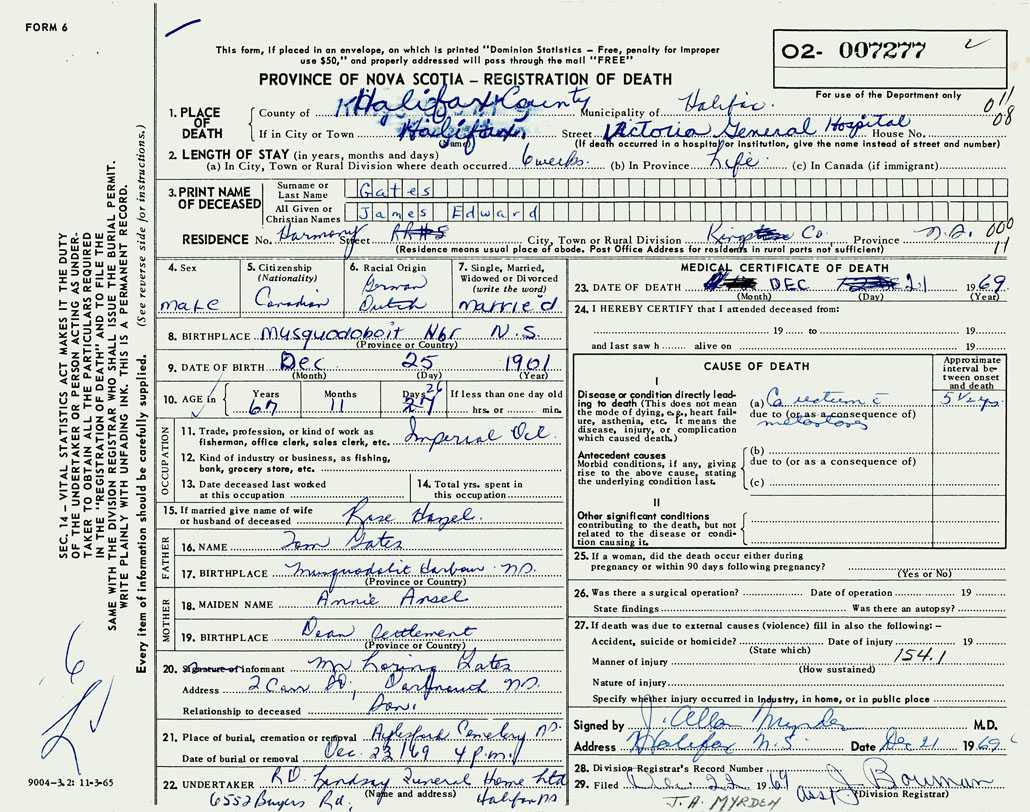 FORM 6
This form, if placed in an envelope, on which is printed "Dominion Statistics – Free, penalty for improper
use $50," and properly addressed will pass through the mail "FREE"
O2- 007277
PROVINCE OF NOVA SCOTIA – REGISTRATION OF DEATH
For use of the Department only
011
08
1. PLACE OF DEATH
County of Halifax County Municipality of Halifax
If in City or Town Halifax Street Victoria General Hospital House No.
(Name) (If death occurred in a hospital or institution, give the name instead of street and number)
2. LENGTH OF STAY (in years, months and days)
(a) In City, Town or Rural Division where death occurred 6 weeks (b) In Province Life (c) In Canada (if immigrant)
3. PRINT NAME OF DECEASED
Surname or Last Name Gates
All Given or Christian Names James Edward
RESIDENCE No. Harmony Street City, Town or Rural Division Kings Co. Province N.S. 000
11
(Residence means usual place of abode. Post Office Address for residents in rural parts not sufficient)
4. Sex
male
5. Citizenship
(Nationality)
Canadian
6. Racial Origin
German
Dutch
7. Single, Married,
Widowed or Divorced
(write the word)
married
8. BIRTHPLACE Musquodoboit Hbr N.S.
(Province or Country)
9. DATE OF BIRTH Dec 25 1901
(Month) (Day) (Year)
10. AGE in Years 67 Months 11 Days 26 27 If less than one day
hrs. or min.
OCCUPATION
11. Trade, profession, or kind of work as
fisherman, office clerk, sales clerk, etc. Imperial Oil
12. Kind of industry or business, as fishing,
bank, grocery store, etc.
13. Date deceased last worked
at this occupation
14. Total yrs. spent in
this occupation
15. If married give name of wife
or husband of deceased Rose Hazel
FATHER
16. NAME Tom Gates
17. BIRTHPLACE Musquodobit Harbour N.S.
(Province or Country)
MOTHER
18. MAIDEN NAME Annie Ansel
19. BIRTHPLACE Dean Settlement
(Province or Country)
20. Signature of informant Mr Loring Gates
Address 2 Carr St, Dartmouth N.S.
Relationship to deceased Son.
21. Place of burial, cremation or removal Aylesford Cemetery N.S.
Date of burial or removal Dec. 23/69 4 p.m.
22. UNDERTAKER R.D. Lindsay Funeral Home Ltd
(Name and address)
6552 Bayers Rd, Halifax NS
MEDICAL CERTIFICATE OF DEATH
23. DATE OF DEATH DEC 21 1969
(Month) (Day) (Year)
24. I HEREBY CERTIFY that I attended deceased from:
19 to 19
and last saw h alive on 19
CAUSE OF DEATH
Approximate
interval be-
tween onset
and death
I
Disease or condition directly lead-
ing to death (This does not mean
the mode of dying, e.g., heart fail-
ure, asthenia, etc. It means the
disease, injury, or complication
which caused death.)
(a) Ca rectum c 5½ yrs.
due to (or as a consequence of)
metastases
Antecedent causes
Morbid conditions, if any, giving
rise to the above cause, stating
the underlying condition last.
(b)
due to (or as a consequence of)
(c)
II
Other significant conditions
contributing to the death, but not
related to the disease or condi-
tion causing it.
25. If a woman, did the death occur either during
pregnancy or within 90 days following pregnancy?
(Yes or No)
26. Was there a surgical operation? Date of operation 19
State findings Was there an autopsy?
27. If death was due to external causes (violence) fill in also the following:–
Accident, suicide or homicide? Date of injury 19
(State which)
Manner of injury 154.1
(How sustained)
Nature of injury
Specify whether injury occurred in industry, in home, or in public place
Signed by J. Allan Myrden M.D.
Address Halifax N.S. Date Dec 21 1969
28. Division Registrar's Record Number
29. Filed Dec 22 1969 asst J Bowman
(Division Registrar)
J. A. MYRDEN
SEC. 14 – VITAL STATISTICS ACT MAKES IT THE DUTY
OF THE UNDERTAKER OR PERSON ACTING AS UNDER-
TAKER TO OBTAIN ALL THE PARTICULARS REQUIRED
IN THE "REGISTRATION OF DEATH" AND TO FILE THE
SAME WITH THE DIVISION REGISTRAR WHO SHALL ISSUE THE BURIAL PERMIT.
WRITE PLAINLY WITH UNFADING INK. THIS IS A PERMANENT RECORD.
Every item of information should be carefully supplied. (See reverse side for instructions.)
6
9004-3.2: 11-3-65